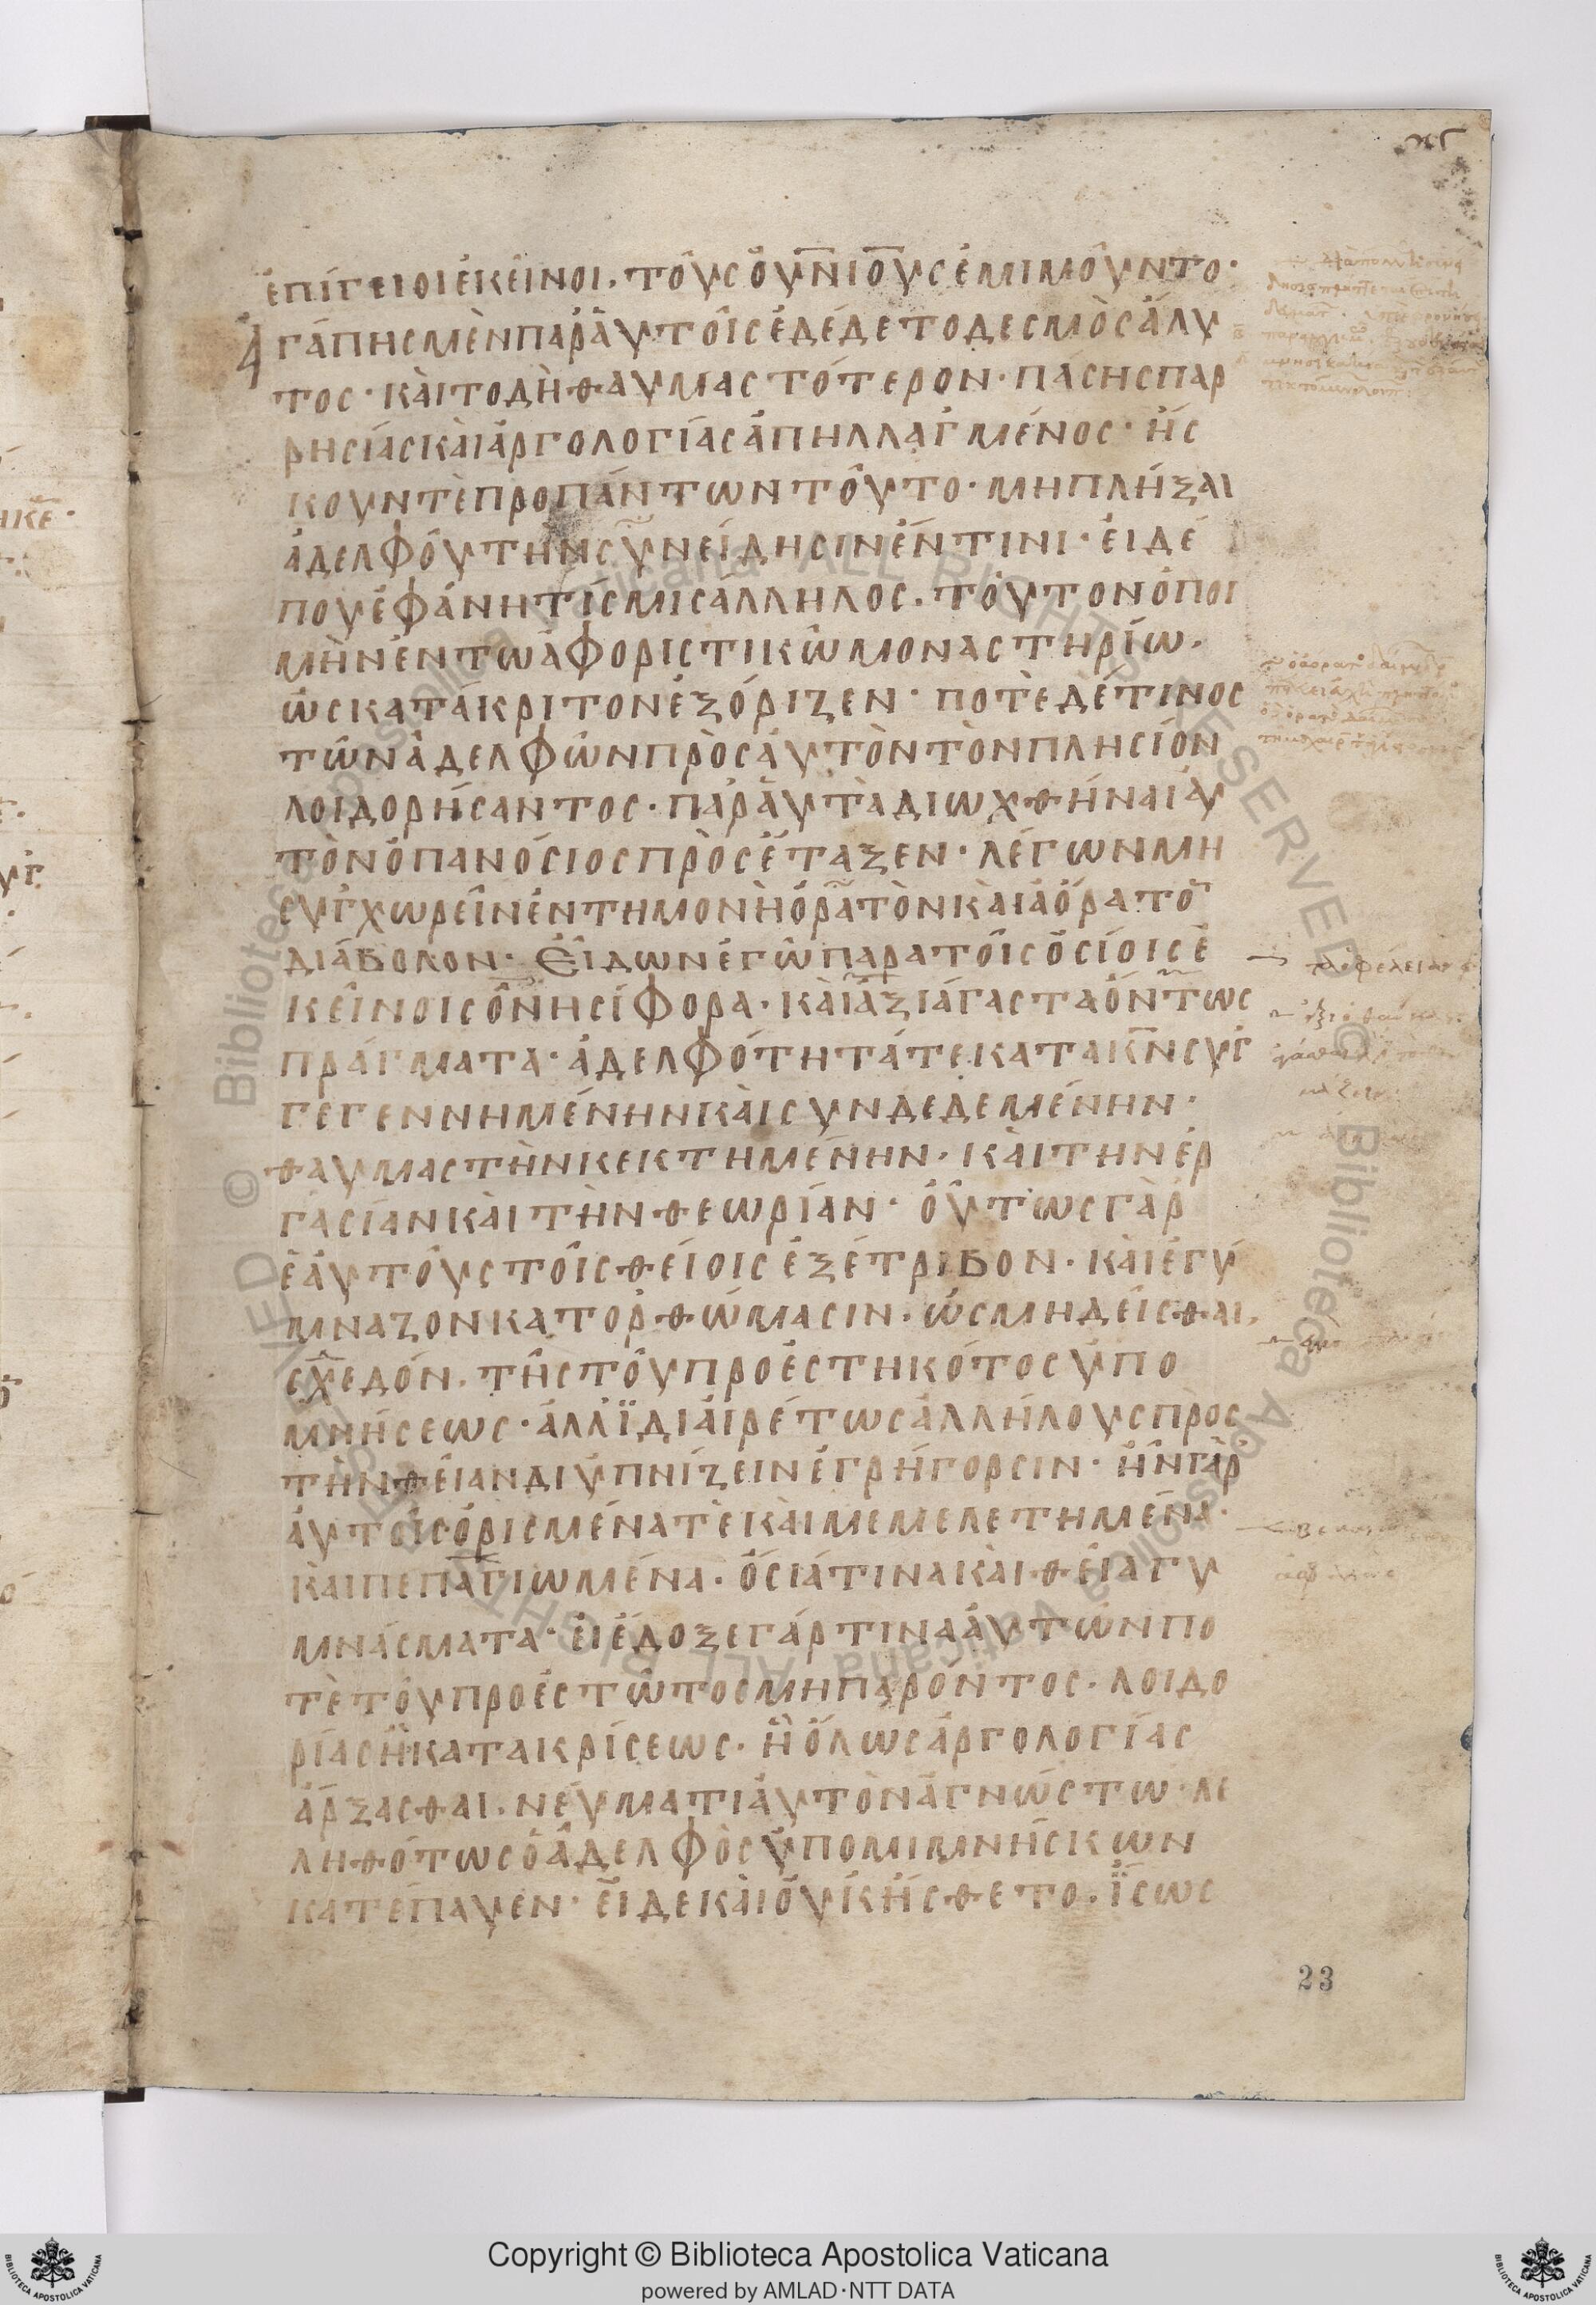 ἐπίγειοι ἐκεῖνοι. τοὺς οὐ̅ν̅ι̅ο̅υς ἐμιμοῦντο·
Ἀγάπης μὲν παρ' αὐτοῖς ἐδέδετο δεσμὸς ἄλυ
τος· καὶ τὸ δὴ θαυμαστότερον· πάσης παρ
ρησίας καὶ ἀργολογίας ἀπηλλαγμένος· ἤς
κουν τὲ πρὸ πάντων τοῦτο· μὴ πλῆξαι
ἀδελφοῦ τὴν συνείδησιν ἔν τινι· εἰ δέ
που ἐφάνη τίς μισάλληλος. τοῦτον ὁ ποι
μὴν ἐν τῶ ἀφοριστικῶ μοναστηρίω.
ὡς κατάκριτον ἐξόριζεν· ποτὲ δέ τινος
τῶν ἀδελφῶν πρὸς αὐτὸν τὸν πλησίον
λοιδορήσαντος. παρ' αὐτὰ διωχθῆναι αὐ
τὸν ὁ πανόσιος πρὸς ἔταξεν· λέγων μὴ
συγχωρεῖν ἐν τῆ μονῆ ὁρατὸν καὶ ἀόρατο̅
διάβολον· Εἶδων ἐγὼ παρὰ τοῖς ὁσίοις ἐ
κείνοις ὀνησίφορα· καὶ ἀξιάγαστα ὄντως
πράγματα· ἀδελφότητά τε κατὰ κ̅ν̅ συγ
γεγεννημένην καὶ συνδεδεμένην·
θαυμαστὴν κεκτημένην. καὶ τὴν ἐρ
γασίαν καὶ τὴν θεωρίαν· οὕτως γὰρ
ἑαυτοὺς τοῖς θείοις ἐξέτριβον. καὶ ἐγύ
μναζον κατορθώμασιν. ὡς μὴ δεῖσθαι
σχεδόν. τῆς τοῦ προεστηκότος ὑπο
μνήσεως· ἀλλ' ϊδιαιρέτως ἀλλήλους πρὸς
τὴν θείαν διυπνίζειν ἐγρήγορσιν· ἦν γὰρ
αὐτοῖς ὁρισμένα τὲ καὶ μεμελετημένα·
καὶ πεπαγιωμένα. ὅσιά τινα καὶ θεῖα γυ
μνάσματα· εἰ ἔδοξε γάρ τινα αὐτῶν πο
τὲ τοῦ προεστῶτος μὴ παρόντος. λοιδο
ρίας ἢ κατακρίσεως. ἢ ὅλως ἀργολογίας
ἄρξασθαι. νεύματι αὐτὸν ἀγνώστω· λε
ληθότως ὁ ἀδελφὸς ὑπομιμνήσκων
κατέπαυεν· εἰ δὲ καὶ οὐκ ἤσθετο. ἴσως
23
Copyright © Biblioteca Apostolica Vaticana
powered by AMLAD·NTT DATA